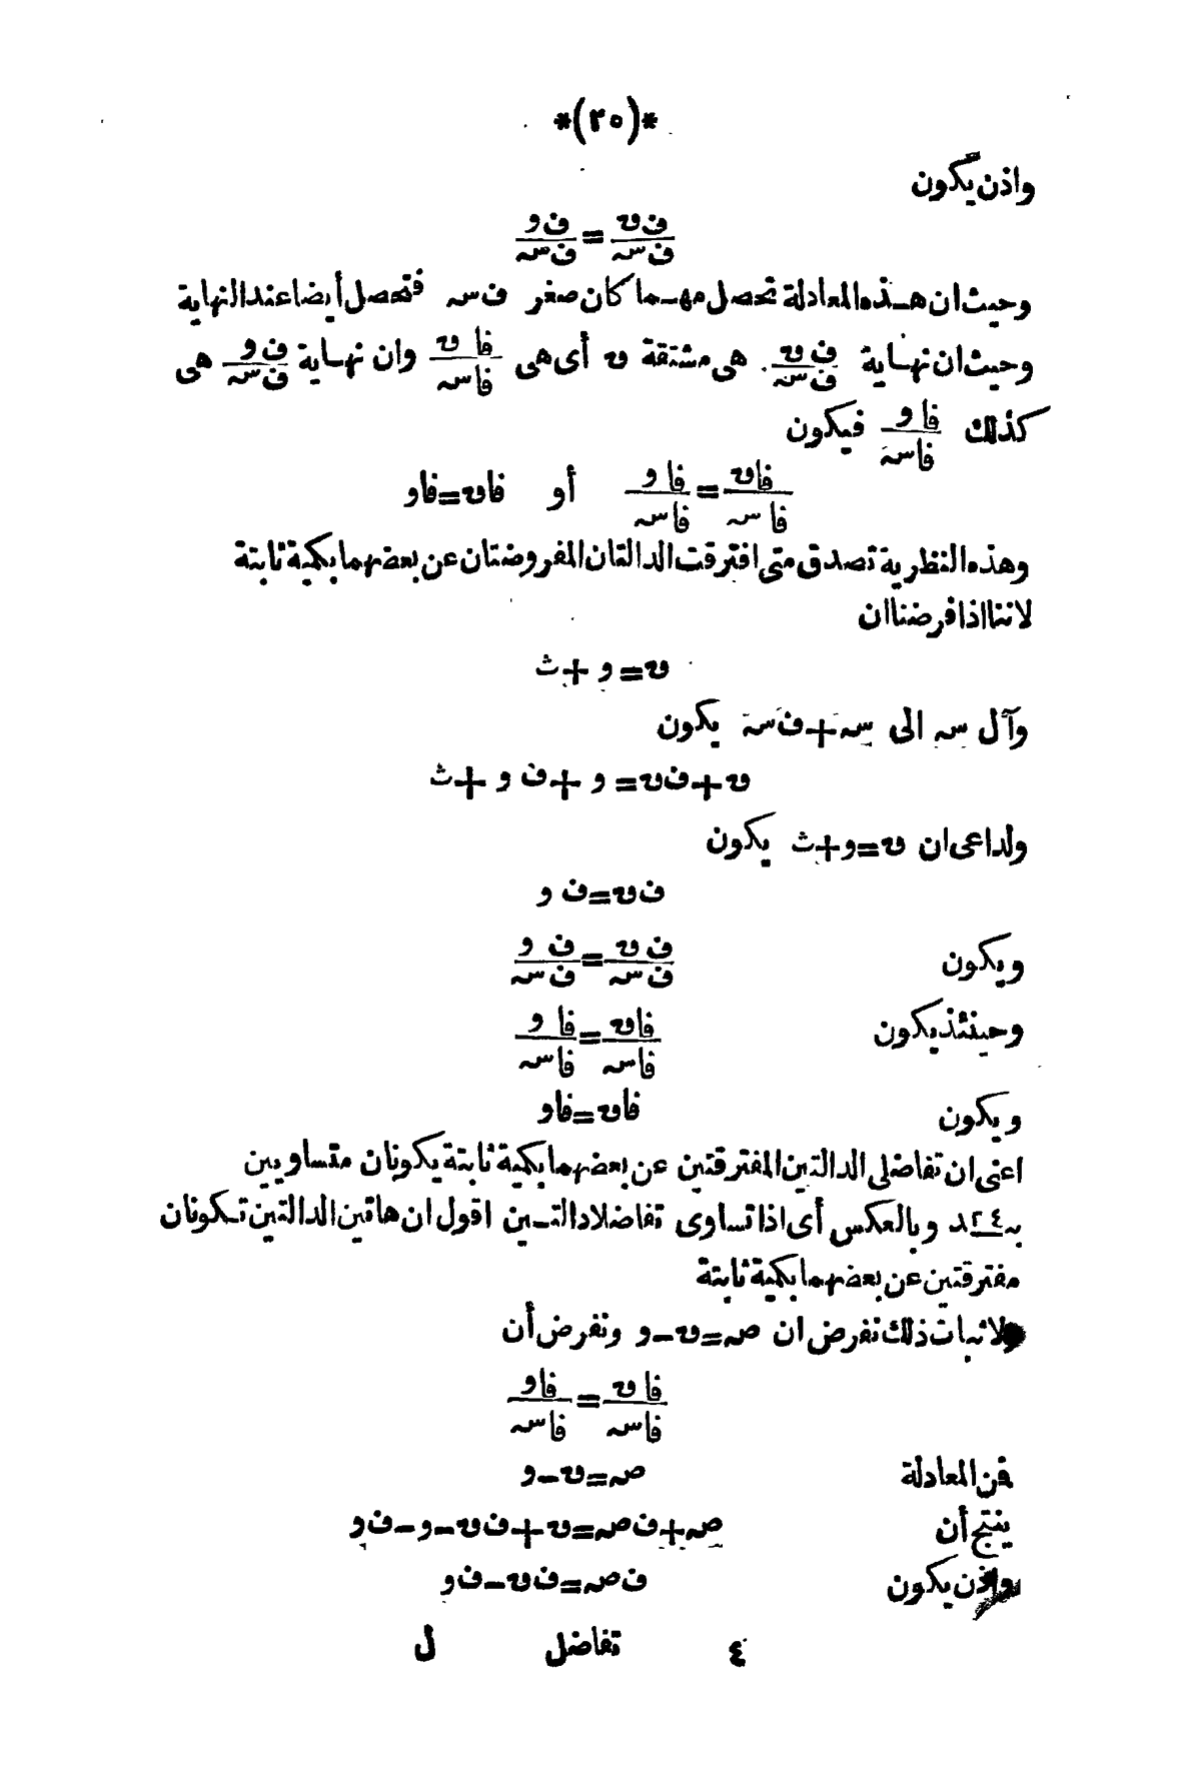 *(٢٥)*
واذن يكون
ف ں / ف سہ = ف و / ف سہ
وحيث ان هـذه المعادلة تحصل مهـما كان صغر ف سہ فتحصل أيضا عند النهاية
وحيث ان نهـاية ف ں / ف سہ هى مشتقة ں أى هى فا ں / فا سہ وان نهـاية ف و / ف سہ هى
كذلك فا و / فا سہ فيكون
فا ں / فا سہ = فا و / فا سہ أو فا ں = فا و
وهذه النظرية تصدق متى افترقت الدالتان المفروضتان عن بعضهما بكمية ثابتة
لاننا اذا فرضنا ان
ں = و + ث
وآل سہ الى سہ + ف سہ يكون
ں + ف ں = و + ف و + ث
ولداعى ان ں = و + ث يكون
ف ں = ف و
ويكون ف ں / ف سہ = ف و / ف سہ
وحينئذ يكون فا ں / فا سہ = فا و / فا سہ
ويكون فا ں = فا و
اعنى ان تفاضلى الدالتين المفترقتين عن بعضهما بكمية ثابتة يكونان متساويين
بـ ٢٤ـد وبالعكس أى اذا تساوى تفاضلا دالتـين اقول ان هاتين الدالتين تـكونان
مفترقتين عن بعضهما بكمية ثابتة
ولاثبات ذلك نفرض ان صہ = ں - و ونفرض أن
فا ں / فا سہ = فا و / فا سہ
فمن المعادلة صہ = ں - و
ينتج أن صہ + ف صہ = ں + ف ں - و - ف و
واذن يكون ف صہ = ف ں - ف و
٤ تفاضل ل